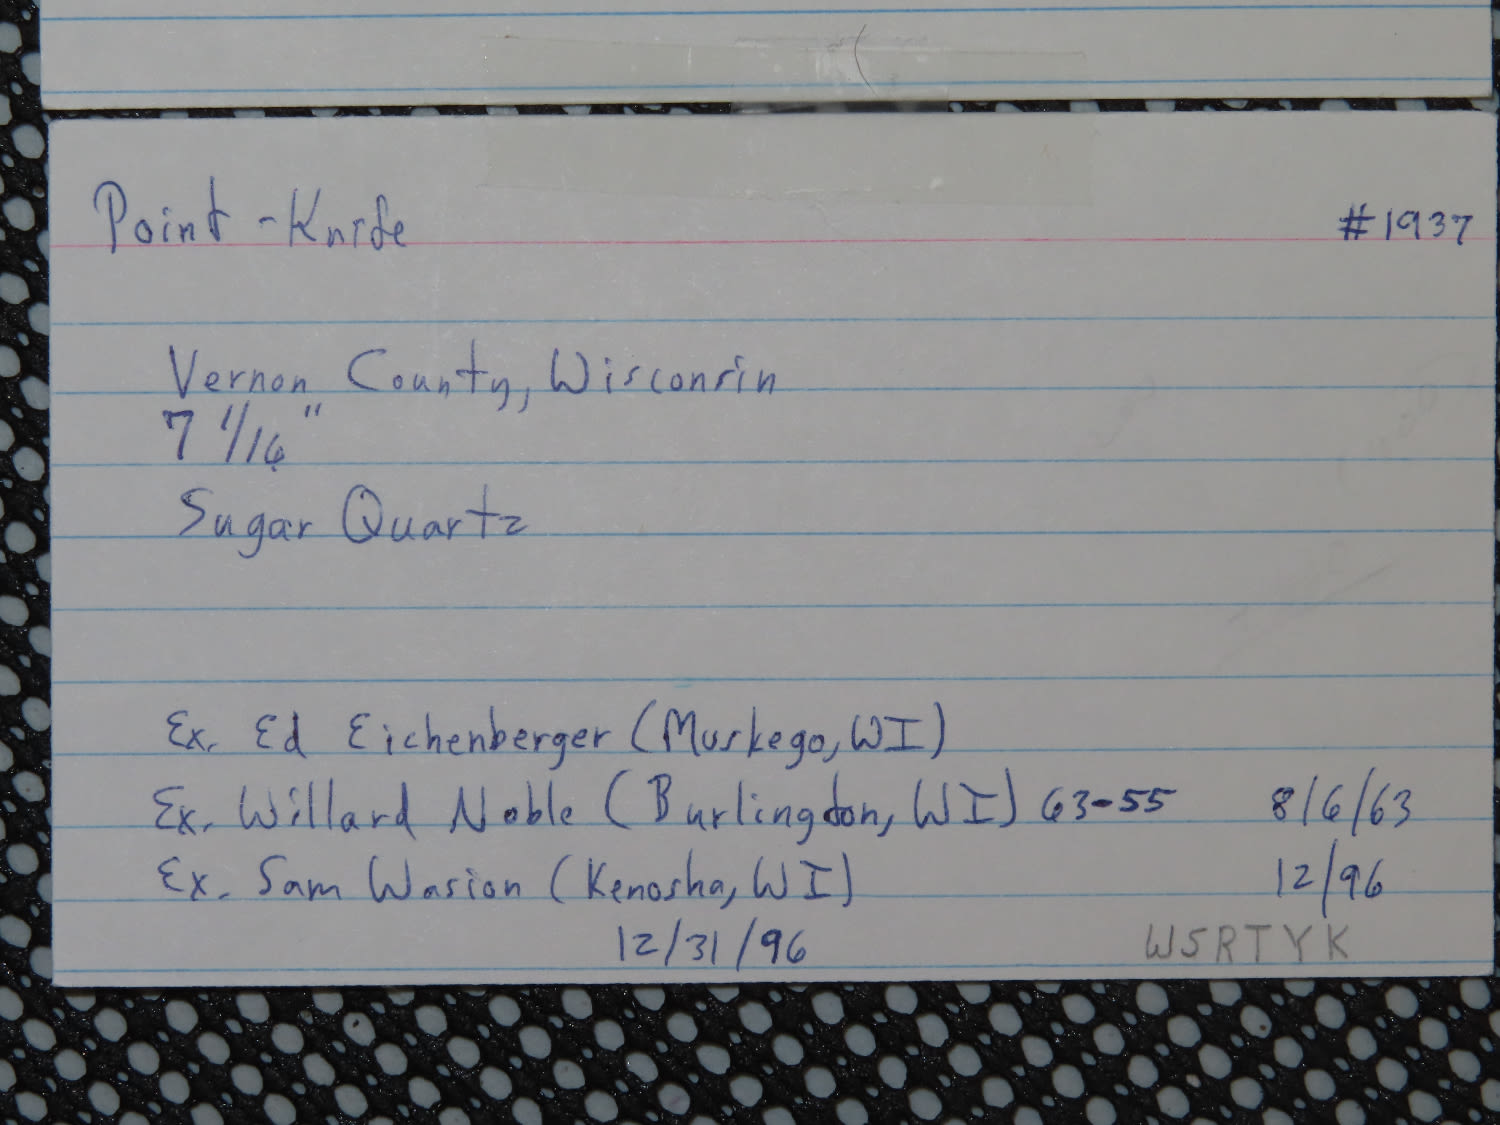 Point - Knife #1937
Vernon County, Wisconsin
7 1/16"
Sugar Quartz
Ex. Ed Eichenberger (Muskego, WI)
Ex. Willard Noble (Burlington, WI) 63-55 8/6/63
Ex. Sam Wasion (Kenosha, WI) 12/96
12/31/96 WSRTYK